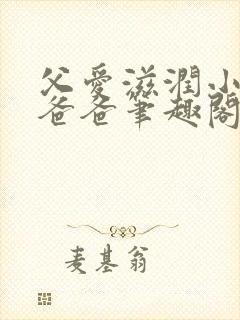 父愛滋潤小
爸爸筆趣閣
麦基翁